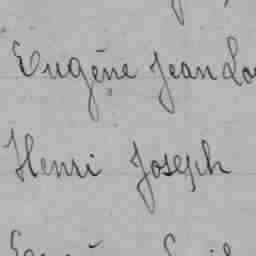 Eugène Jean Lou
Henri Joseph